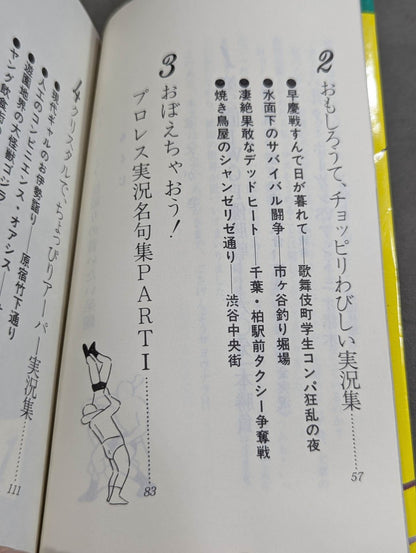 2 おもしろうて、チョッピリわびしい実況集……57
●早慶戦すんで日が暮れて──歌舞伎町学生コンパ狂乱の夜
●水面下のサバイバル闘争──市ヶ谷釣り堀場
●凄絶果敢なデッドヒート──千葉・柏駅前タクシー争奪戦
●焼き鳥屋のシャンゼリゼ通り──渋谷中央街
3 おぼえちゃおう!
プロレス実況名句集PARTⅠ……83
4 クリスタルで、ちょっぴりアーバー実況集……111
●現代ギャルのお伊勢詣り──原宿竹下通り
●人工のコンビニエンス・オアシス──
●遊園地界の大怪獣ゴジラ
●ヤング飲食街